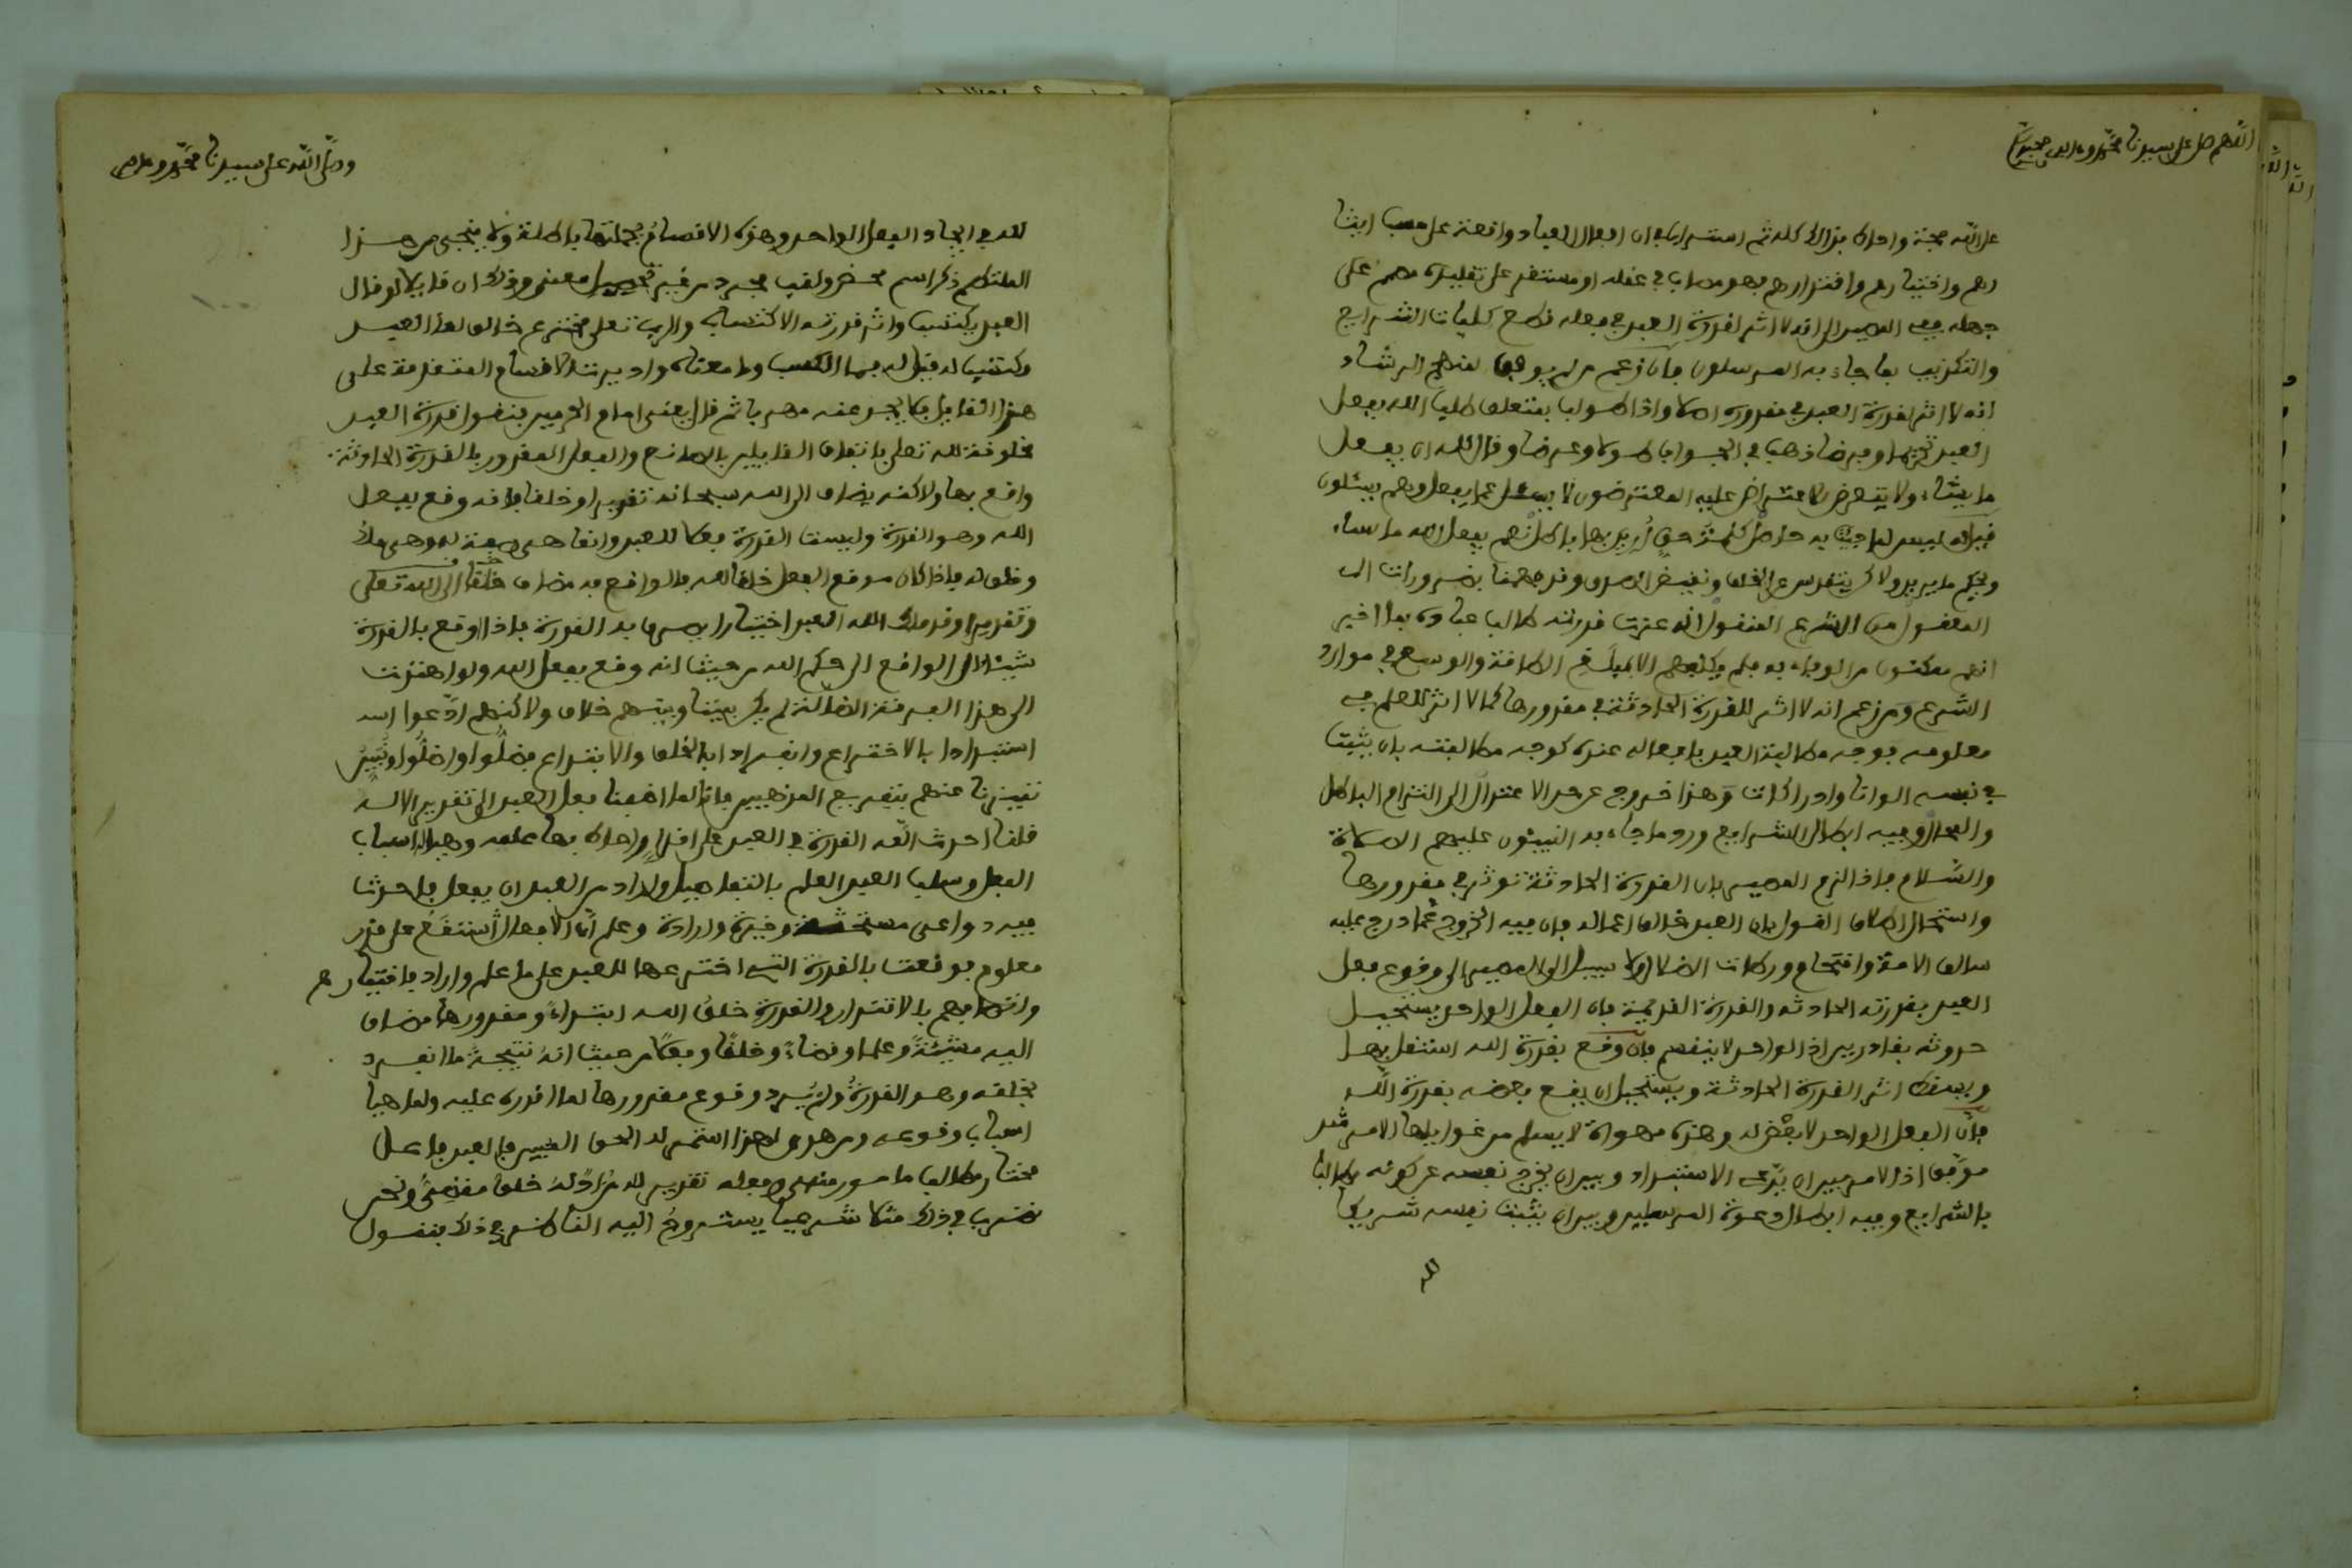 اللهم صل على سيدنا محمد وءاله وصحبه
على الله حجة واحاط بذلك كله ثم استراب في ان افعال العباد واقعة على حسب ايثا
رهم واختيارهم واقتدارهم فهو مصاب في عقله او مستقر على تقليده مصمم على
جهله ففي المصير الى انه لا اثر لقدرة العبد في فعله قطع طلبات الشرايع
والتكذيب بما جاء به المرسلون فان زعم من لم يوفق لمنهج الرشاد
انه لا اثر لقدرة العبد في مقدوره اصلا واذا طولب بمتعلق طلب الله بفعل
العبد تحريما وفرضا ذهب في الجواب طولا وعرضا وقال لله ان يفعل
ما يشاء ولا يتعرض للاعتراض عليه المعترضون لا يسئل عما يفعل وهم يسئلون
قيل له ليس لما جئت به حاصل كلمة حق اريد بها باطل نعم يفعل الله ما يشاء
ويحكم ما يريد ولاكن يتقدس عن الخلف ونقيض الصدق وقد فهمنا بضرورات الـ
المعقول من الشرع المنقول انه عزت قدرته طالب عباده بما اخبر
انهم ممكنون من الوفاء به فلم يكلفهم الا مبلغ الطاقة والوسع في موارد
الشرع ومن زعم انه لا اثر للقدرة الحادثة في مقدورها كما لا اثر للعلم في
معلومه فوجه مطالبة العبد بافعاله عنده كوجه مطالبته بان يثبت
في نفسه الوانا وادراكات وهذا خروج عن حد الاعتدال الى التزام الباطل
والمحال وفيه ابطال الشرايع ورد ما جاء به النبيئون عليهم الصلاة
والسلام فاذا لزم المصير بان القدرة الحادثة توثر في مقدورها
واستحال اطلاق القول بان العبد خالق اعماله فان فيه الخروج عما درج عليه
سالف الامة واقتحام ورطات الضلال ولا سبيل الى المصير الى وقوع فعل
العبد بقدرته الحادثة والقدرة القديمة فان الفعل الواحد يستحيل
حدوثه بقادرين اذ الواحد لا ينقسم فان وقع بقدرة الله استقل بها
ويسقط اثر القدرة الحادثة ويستحيل ان يقع بعضه بقدرة الله
فان الفعل الواحد لا بعض له وهذه مهواة لا يسلم من غوايلها الا مرشد
موفق اذ الامر بين ان يدعى الاستبداد وبين ان يخرج نفسه عن كونه مطالبا
بالشرايع وفيه ابطال دعوة المرسلين وبين ان يثبت نفسه شريكا
لله
وصلى الله على سيدنا محمد وءاله
لله في ايجاد الفعل الواحد وهذه الاقسام بجملتها باطلة ولا ينجي من هذا
الملتطم ذكر اسم محض ولقب مجرد من غير تحصيل معنى وذلك ان قايلا لو قال
العبد يكتسب واثر قدرته الاكتساب والرب تعلى مخترع خالق لما العبد
مكتسب له قيل له فما الكسب وما معناه واديرت الاقسام المتقدمة على
هذا القايل فلا يجد عنه مهربا ثم قال يعنى امام الحرمين فنقول قدرة العبد
مخلوقة لله تعلى باتفاق القايلين بالصانع والفعل المقدور بالقدرة الحادثة
واقع بها ولاكنه يضاف الى الله سبحانه تقديرا وخلقا فانه وقع بفعل
الله وهو القدرة وليست القدرة فعلا للعبد وانما هي صفة له وهي ملك
وخلق له فاذا كان موقع الفعل خلقا لله فالواقع به مضاف خلقا الى الله تعلى
وتقديرا وقد ملك الله العبد اختيارا يصرف به القدرة فاذا اوقع بالقدرة
شيئا ءال الواقع الى حكم الله من حيث انه وقع بفعل الله ولو اهتدت
الى هذا الفرقة الضالة لم يكن بيننا وبينهم خلاف ولاكنهم ادعوا
استبدادا بالاختراع وانفرادا بالخلق والابتداع فضلوا واضلوا وتبين
تميزنا عنهم بتفريع المذهبين فانا لما اضفنا فعل العبد الى تقدير الاله
قلنا احدث الله القدرة في العبد على اقدار احاط بها علمه وهيا اسباب
الفعل وسلب العبد العلم بالتفاصيل واراد من العبد ان يفعل فاحدث
فيه دواعي مستحثة وخيرة وارادة وعلم ان الافعال ستقع على قدر
معلوم فوقعت بالقدرة التي اخترعها للعبد على ما علم واراد فاختيارهم
واتصافهم بالاقتدار والقدرة خلق الله ابتداء ومقدورها مضاف
اليه مشيئة وعلما وقضاء وخلقا وفعلا من حيث انه نتيجة ما انفرد
بخلقه وهو القدرة ولو لم يرد وقوع مقدورها لما اقدره عليه ولما هيا
اسباب وقوعه ومن هدي لهذا استمر له الحق المبين فالعبد فاعل
مختار مطالب مامور منهي وفعله تقدير لله مراد له خلق مقضي ونحن
نضرب في ذلك مثلا شرعيا يستروح اليه الناظر في ذلك فنقول